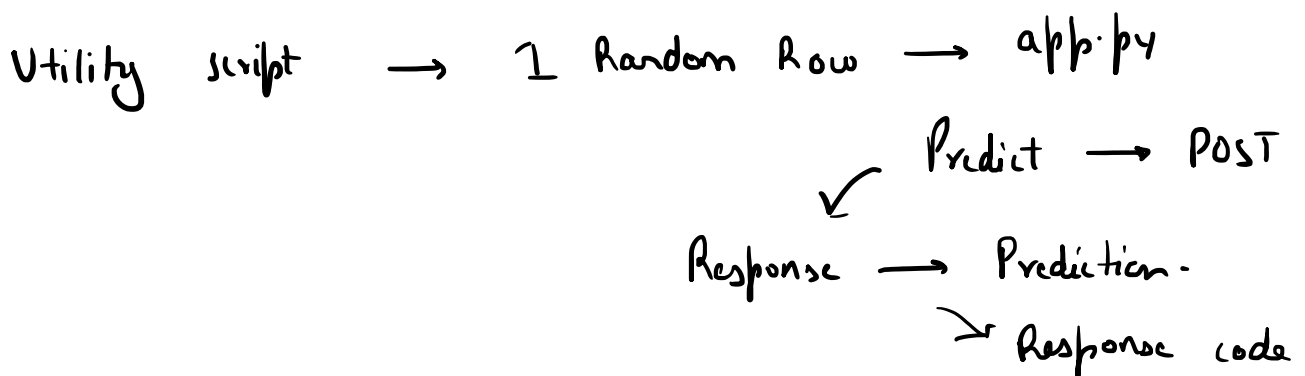 Utility script → 1 Random Row → app.py
Predict → POST
Response → Prediction.
Response code